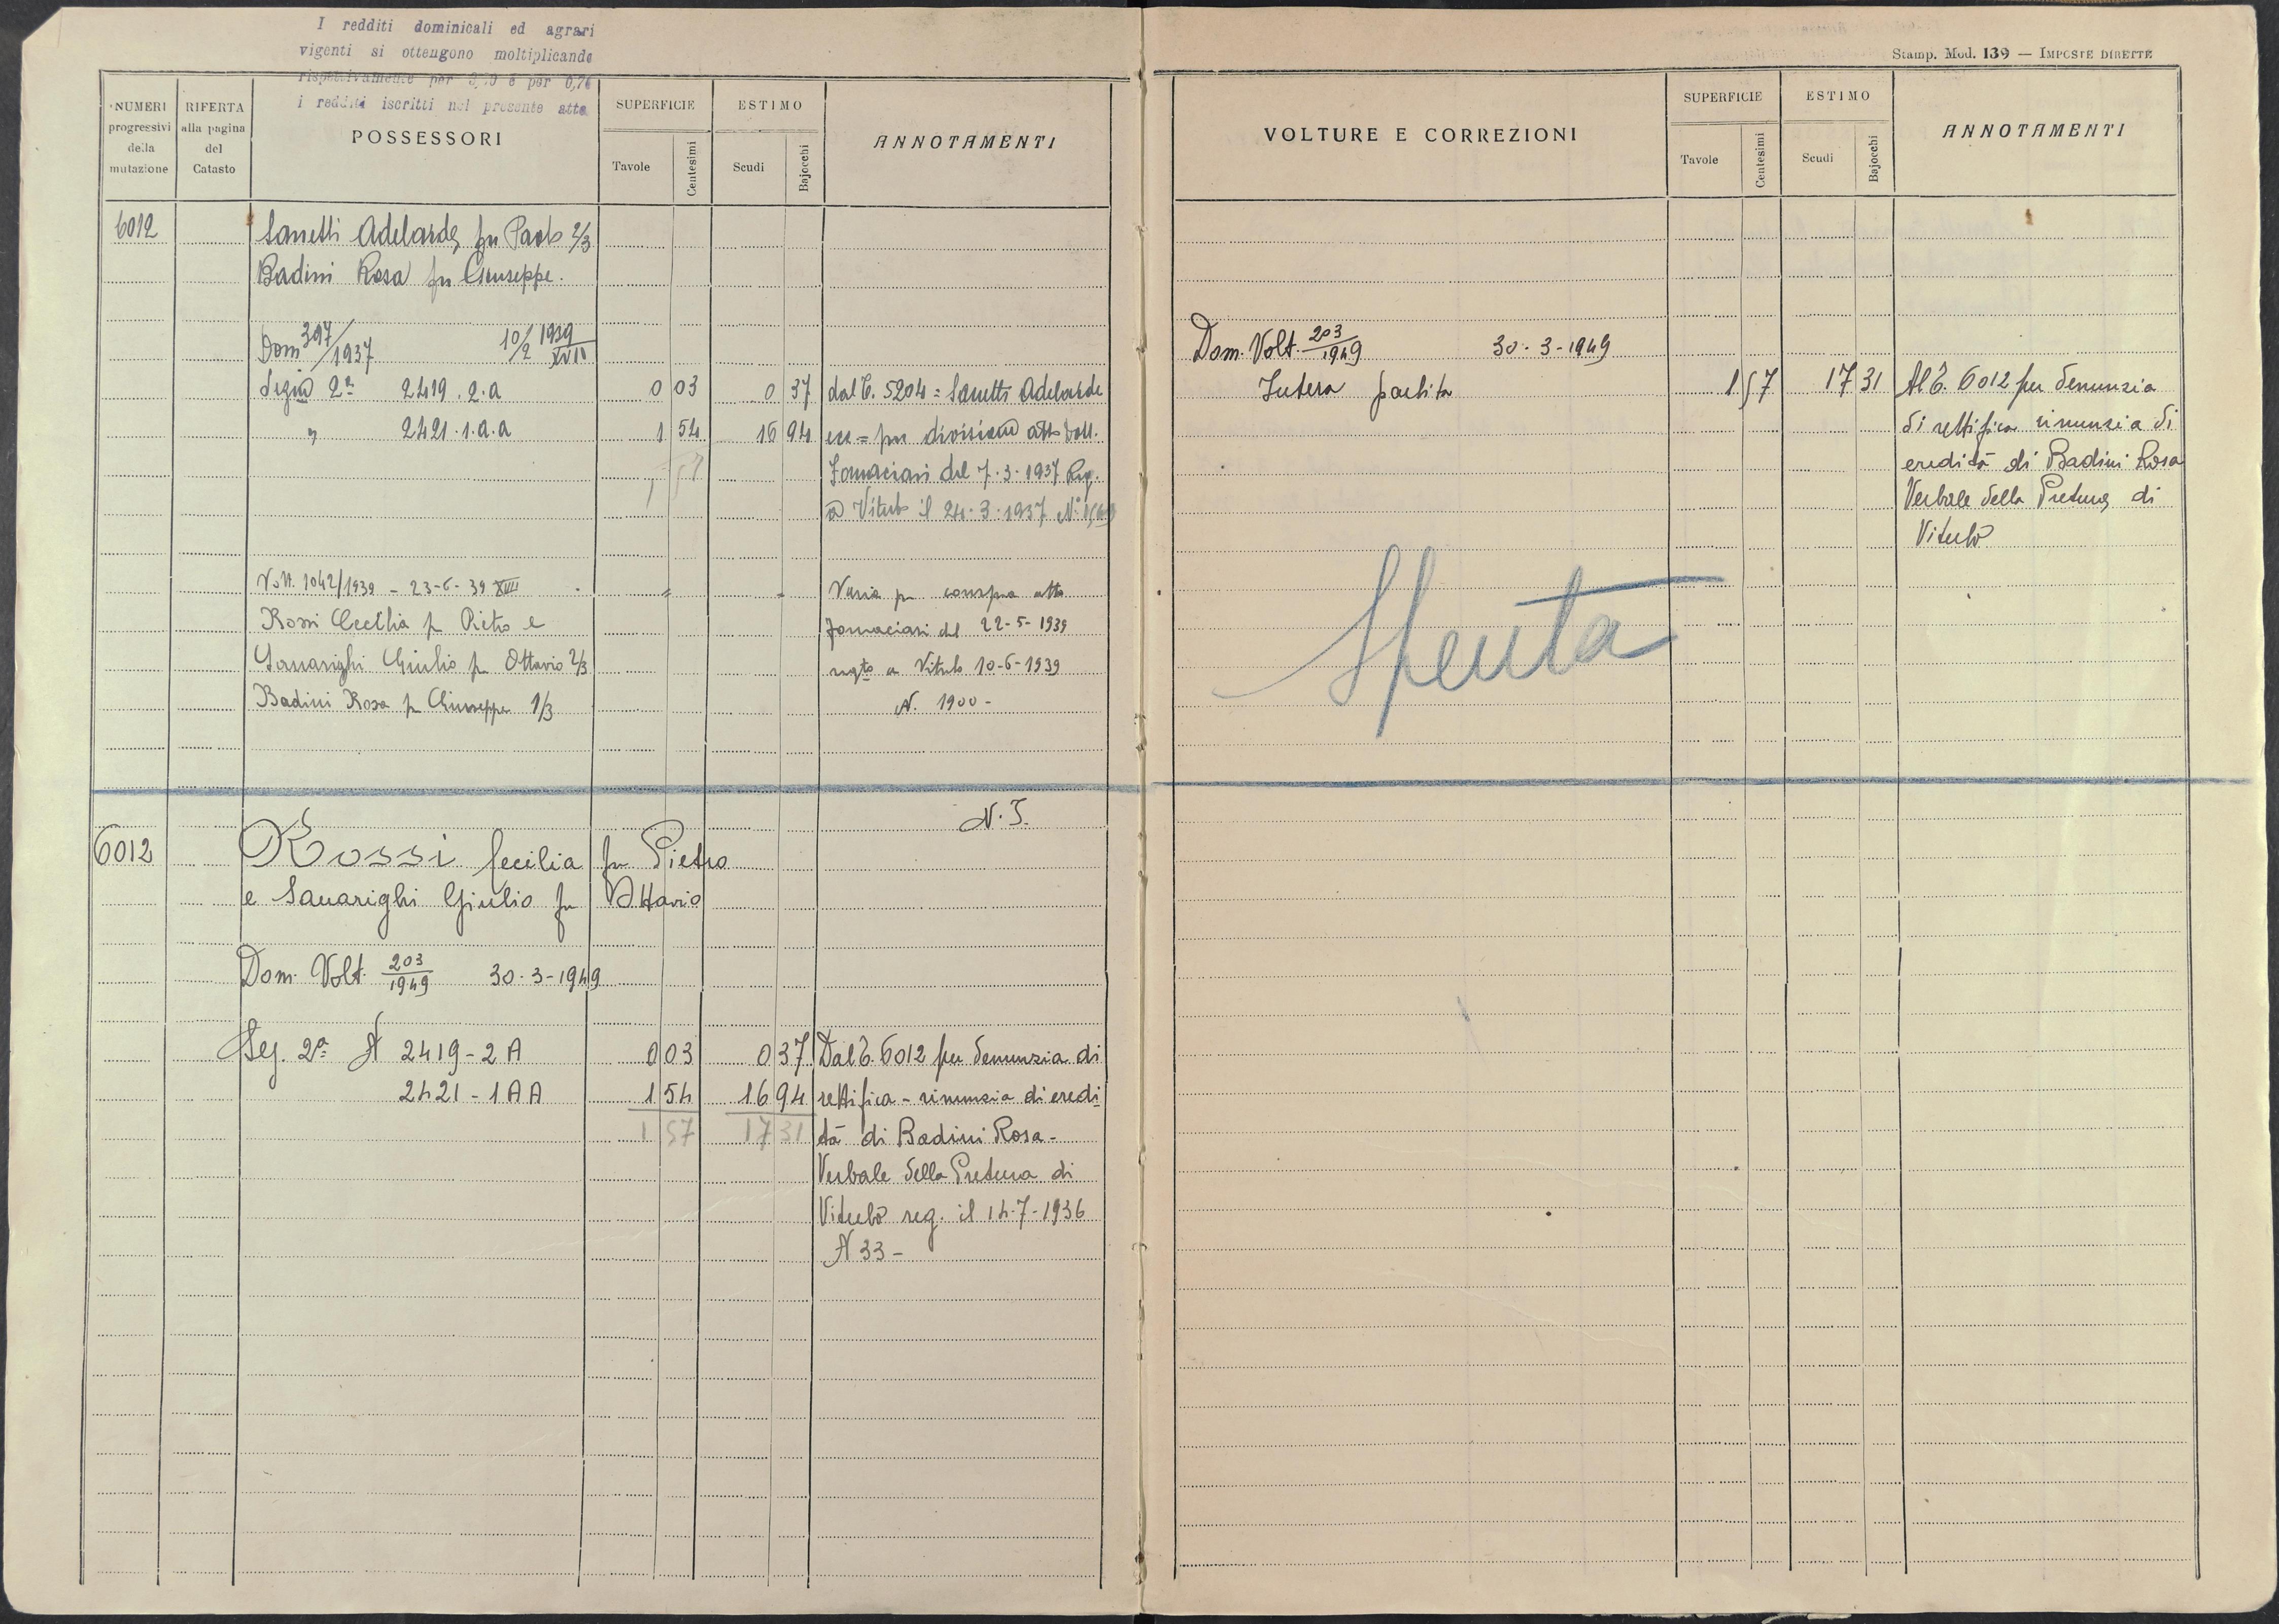 I redditi dominicali ed agrari
vigenti si ottengono moltiplicande
rispettivamente per e per 0,76
i redditi iscritti nel presente atto
NUMERI progressivi della mutazione
RIFERTA alla pagina del Catasto
POSSESSORI
SUPERFICIE
Tavole Centesimi
ESTIMO
Scudi Bajocchi
ANNOTAMENTI
6012 Adelarde fu Paolo 2/3
Badini Rosa fu Giuseppe.
Dom 397/1937 10/2 1939 XVII
Segue 2ª 2419.2.a 0 03 0 37 dal C. 5204 = Adelarde
" 2421.1.a.a 1 54 16 94 ecc = per divisione atto Dott.
1 57 Fornaciari del 7.3.1937 Reg.
a Viterbo il 24.3.1937 N.
Volt. 1042/1939 - 23-6-39 XVII Varia per compra atto
Rossi Cecilia fu Pietro e Fornaciari del 22-5-1939
Giulio fu Ottavio 2/3 regto a Viterbo 10-6-1939
Badini Rosa fu Giuseppe 1/3 N. 1900-
N. I.
6012 Rossi Cecilia fu Pietro
e Sanarighi Giulio fu Ottavio
Dom. Volt. 203/1949 30-3-1949
Seg. 2ª N 2419-2A 0 03 0 37 Dal C. 6012 per denunzia di
2421-1AA 1 54 16 94 rettifica - rinunzia di eredi-
1 57 17 31 tà di Badini Rosa -
Verbale della Pretura di
Viterbo reg. il 14-7-1936
N 33 -
Stamp. Mod. 139 — IMPOSTE DIRETTE
VOLTURE E CORREZIONI
SUPERFICIE
Tavole Centesimi
ESTIMO
Scudi Bajocchi
ANNOTAMENTI
Dom. Volt. 203/1949 30-3-1949
Intera partita 1 57 17 31 Al C. 6012 per denunzia
di rettifica rinunzia di
eredità di Badini Rosa
Verbale della Pretura di
Viterbo
Spenta